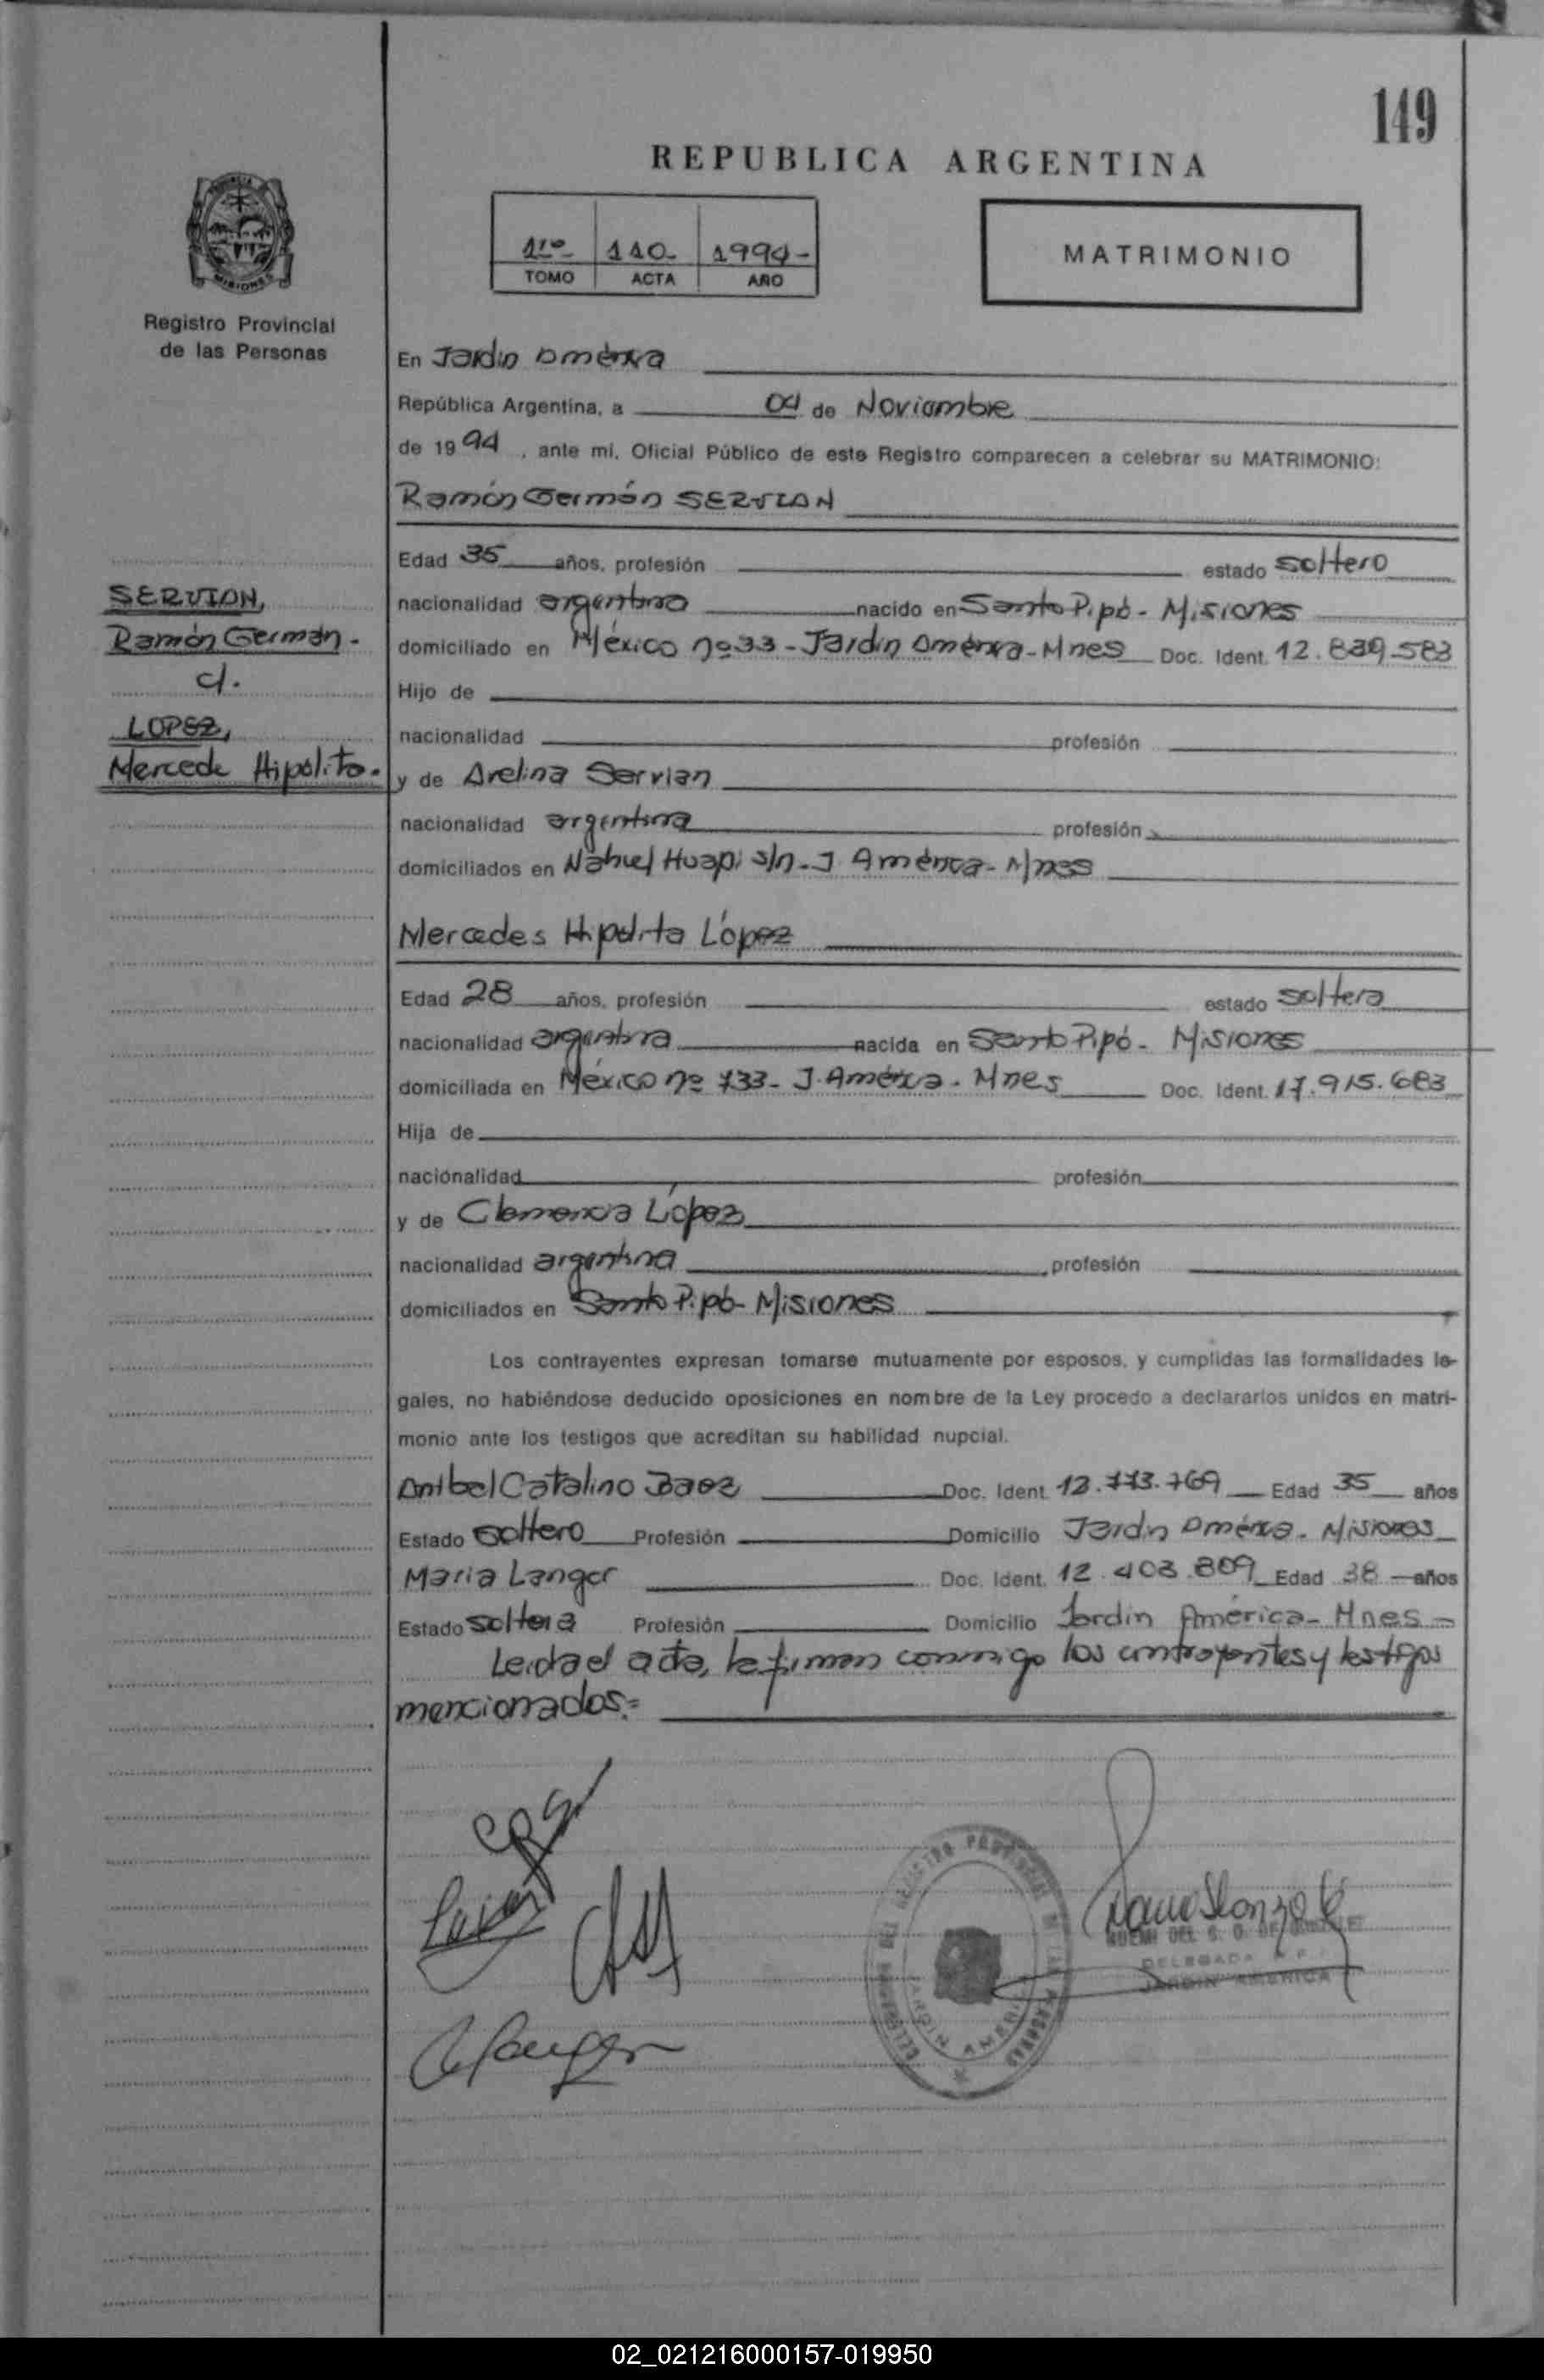 149
REPUBLICA ARGENTINA
1ro 110- 1994-
TOMO ACTA AÑO
MATRIMONIO
Registro Provincial
de las Personas
SERVIAN,
Ramón Germán.
c/.
LOPEZ,
Mercede Hipólita.
En Jardín América
República Argentina, a 04 de Noviembre
de 1994, ante mi, Oficial Público de este Registro comparecen a celebrar su MATRIMONIO:
Ramón Germán SERVIAN
Edad 35 años, profesión estado soltero
nacionalidad argentina nacido en Santo Pipó - Misiones
domiciliado en México nº 33 - Jardín América - Mnes Doc. Ident. 12.839.583
Hijo de
nacionalidad profesión
y de Avelina Servian
nacionalidad argentina profesión
domiciliados en Nahuel Huapi s/n - J. América - Mnes
Mercedes Hipólita López
Edad 28 años, profesión estado soltera
nacionalidad argentina nacida en Santo Pipó - Misiones
domiciliada en México nº 733 - J. América - Mnes Doc. Ident. 17.915.683
Hija de
nacionalidad profesión
y de Clemencia López
nacionalidad argentina profesión
domiciliados en Santo Pipó - Misiones
Los contrayentes expresan tomarse mutuamente por esposos, y cumplidas las formalidades le-
gales, no habiéndose deducido oposiciones en nombre de la Ley procedo a declararlos unidos en matri-
monio ante los testigos que acreditan su habilidad nupcial.
Anibal Catalino Baez Doc. Ident. 13.773.769 Edad 35 años
Estado soltero Profesión Domicilio Jardín América - Misiones
Maria Langer Doc. Ident. 12.403.809 Edad 38 años
Estado soltera Profesión Domicilio Jardín América - Mnes
Leída el acta, la firman conmigo los contrayentes y testigos
mencionados.=
JARDIN AMERICA
DELEGADA
JARDIN AMERICA
02_021216000157-019950